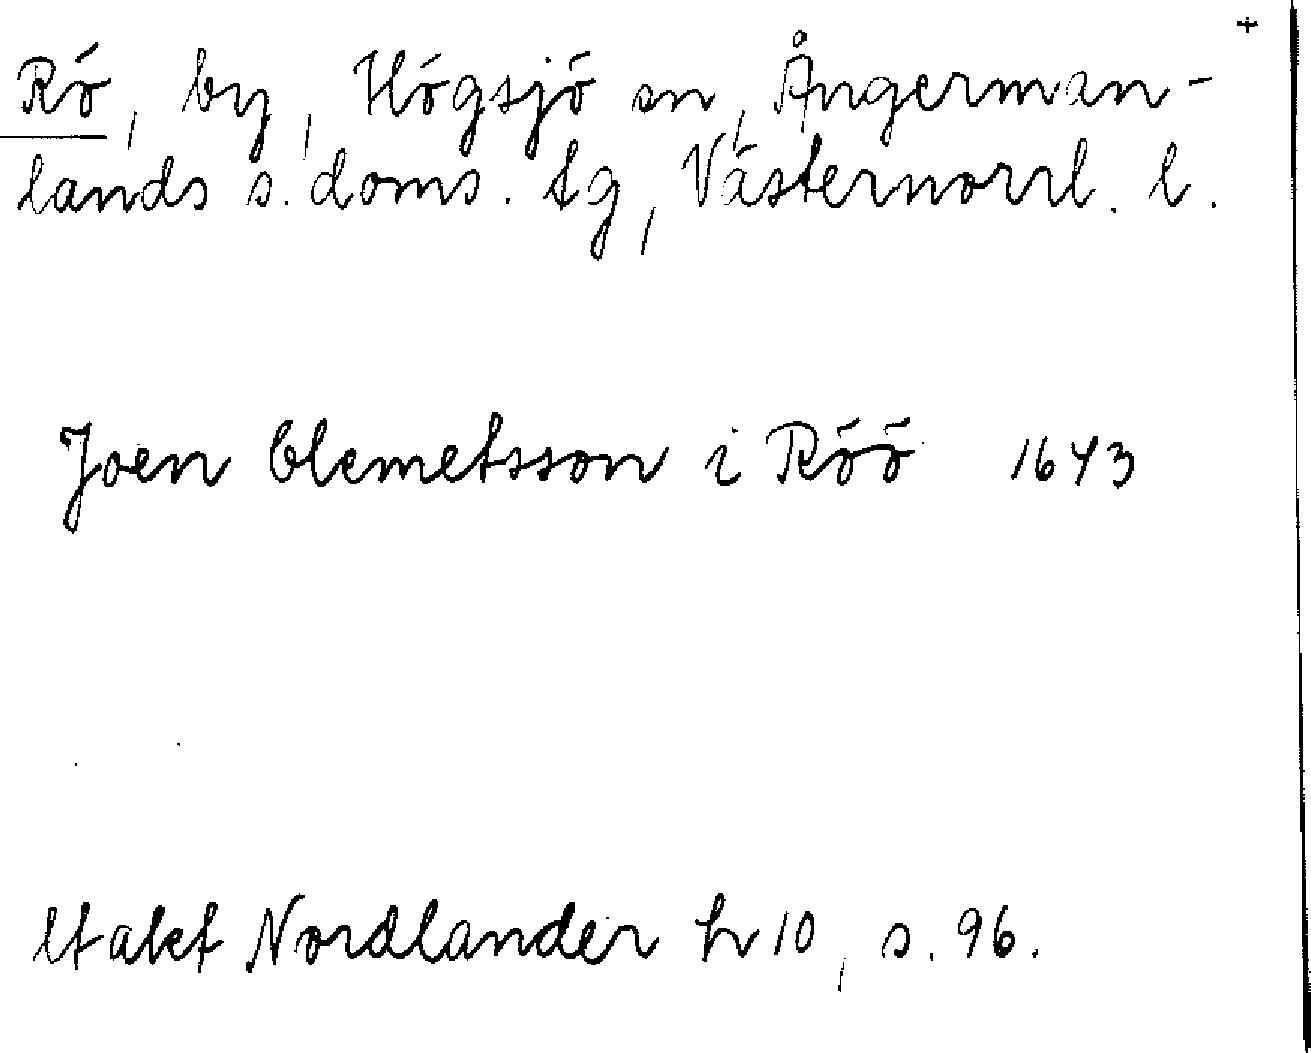 +
Rö, by, Högsjö sn, Ångerman-
lands s. doms. tg, Västernorrl. l.
Joen Clemetsson i Röö 1643
Utakt Nordlander h 10, s. 96.